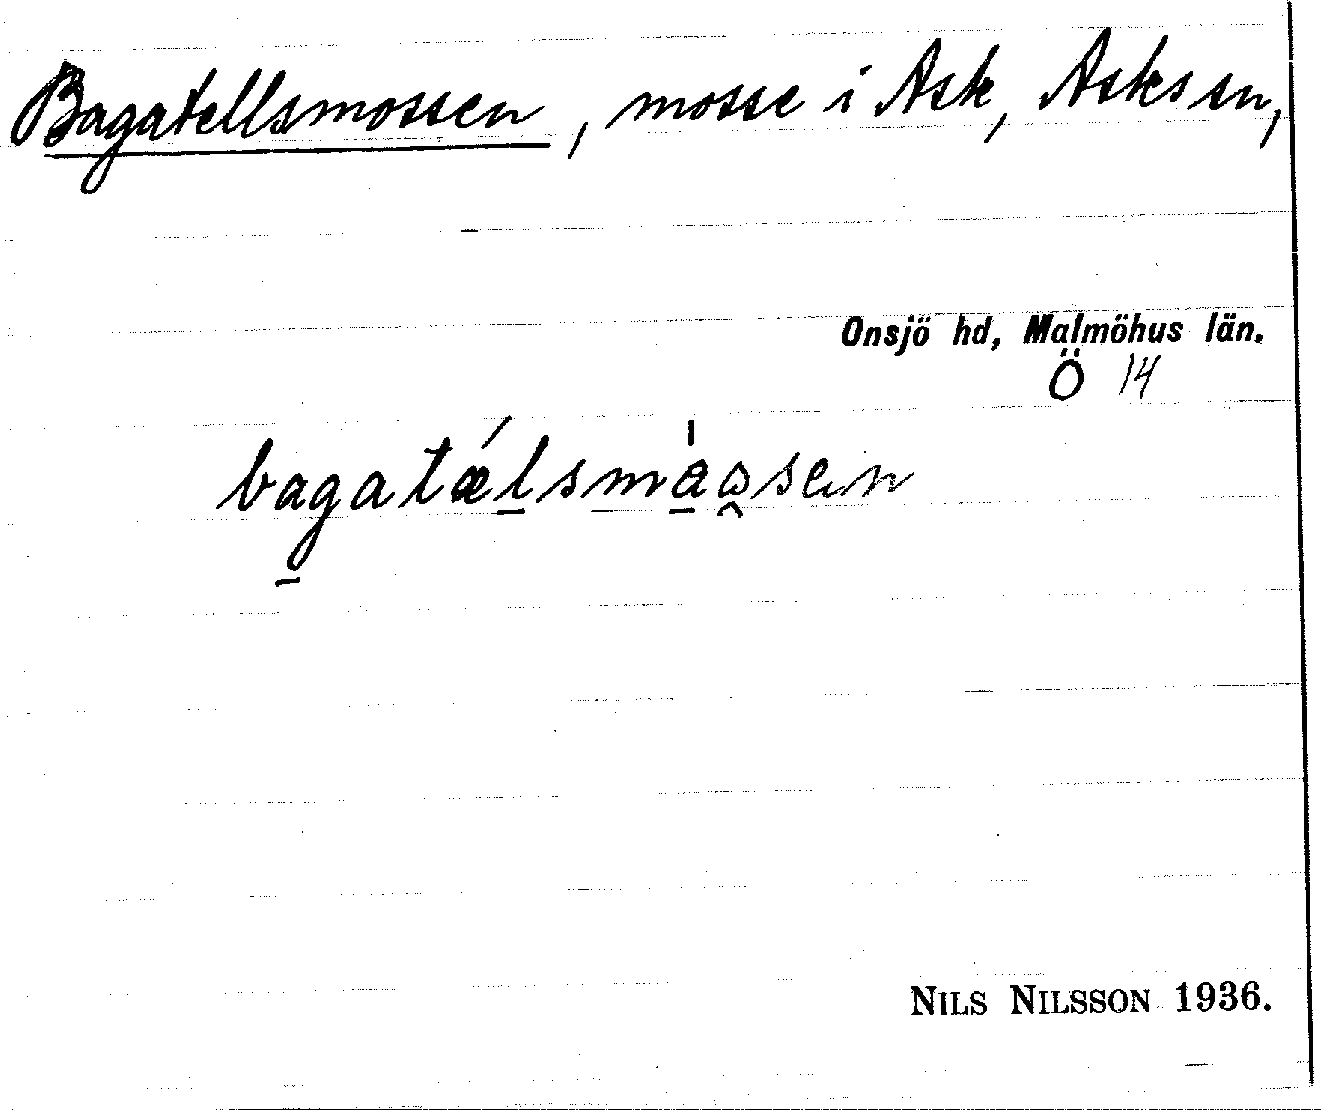 Bagatellsmossen, mosse i Ask, Asks sn,
Onsjö hd, Malmöhus län.
Ö 14
NILS NILSSON 1936.